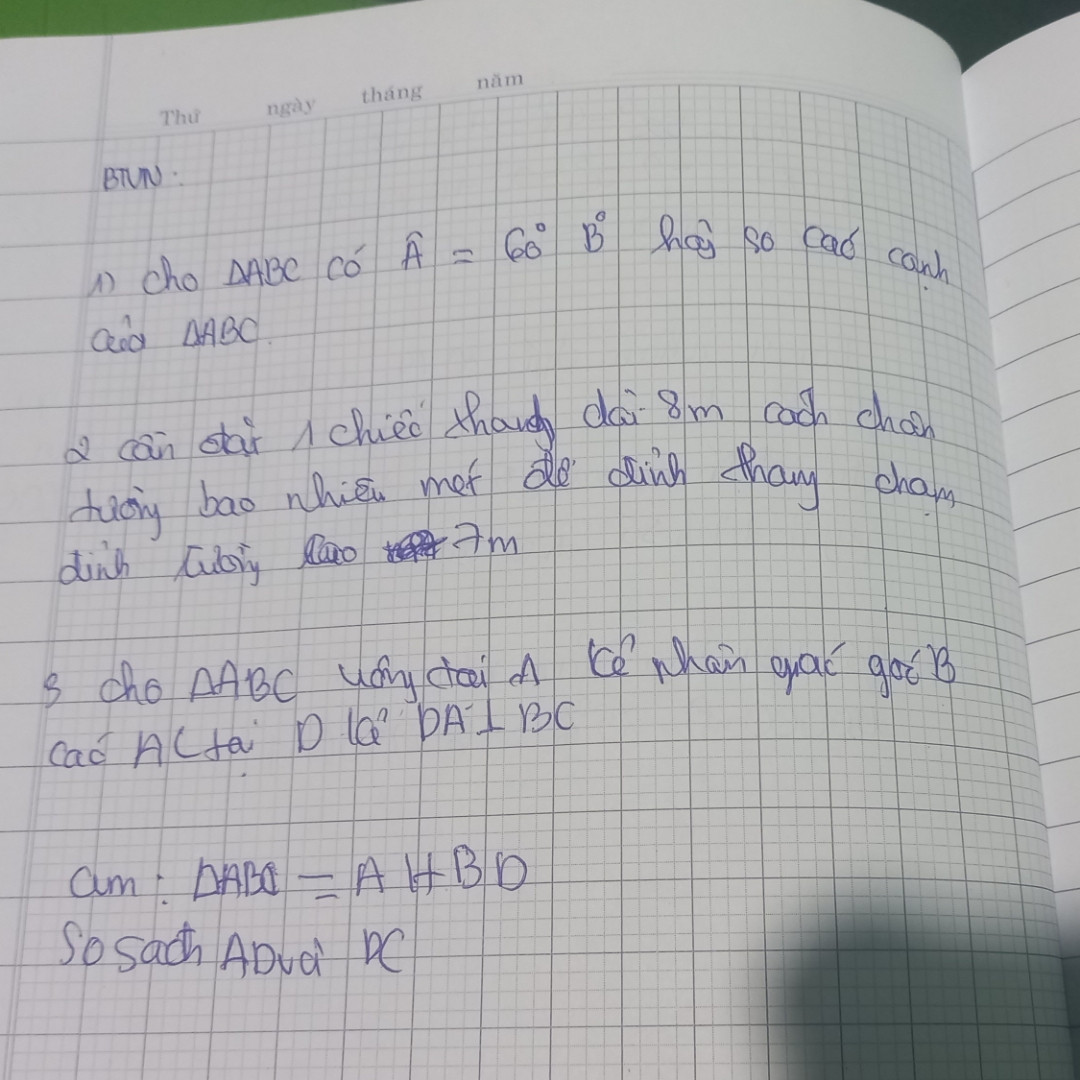 Thứ ngày tháng năm
BTVN:
1) Cho ΔABC có Â = 60° B° hãy so các cạnh
của ΔABC.
2 cần đặt 1 chiếc thang dài 8m cách chân
tường bao nhiêu mét để đỉnh thang chạm
đỉnh tường cao 7m
3 cho ΔABC vuông tại A kẻ phân giác góc B
các AC tại D kẻ DA ⊥ BC
cm: ΔABD = AHBD
So sách AD và DC